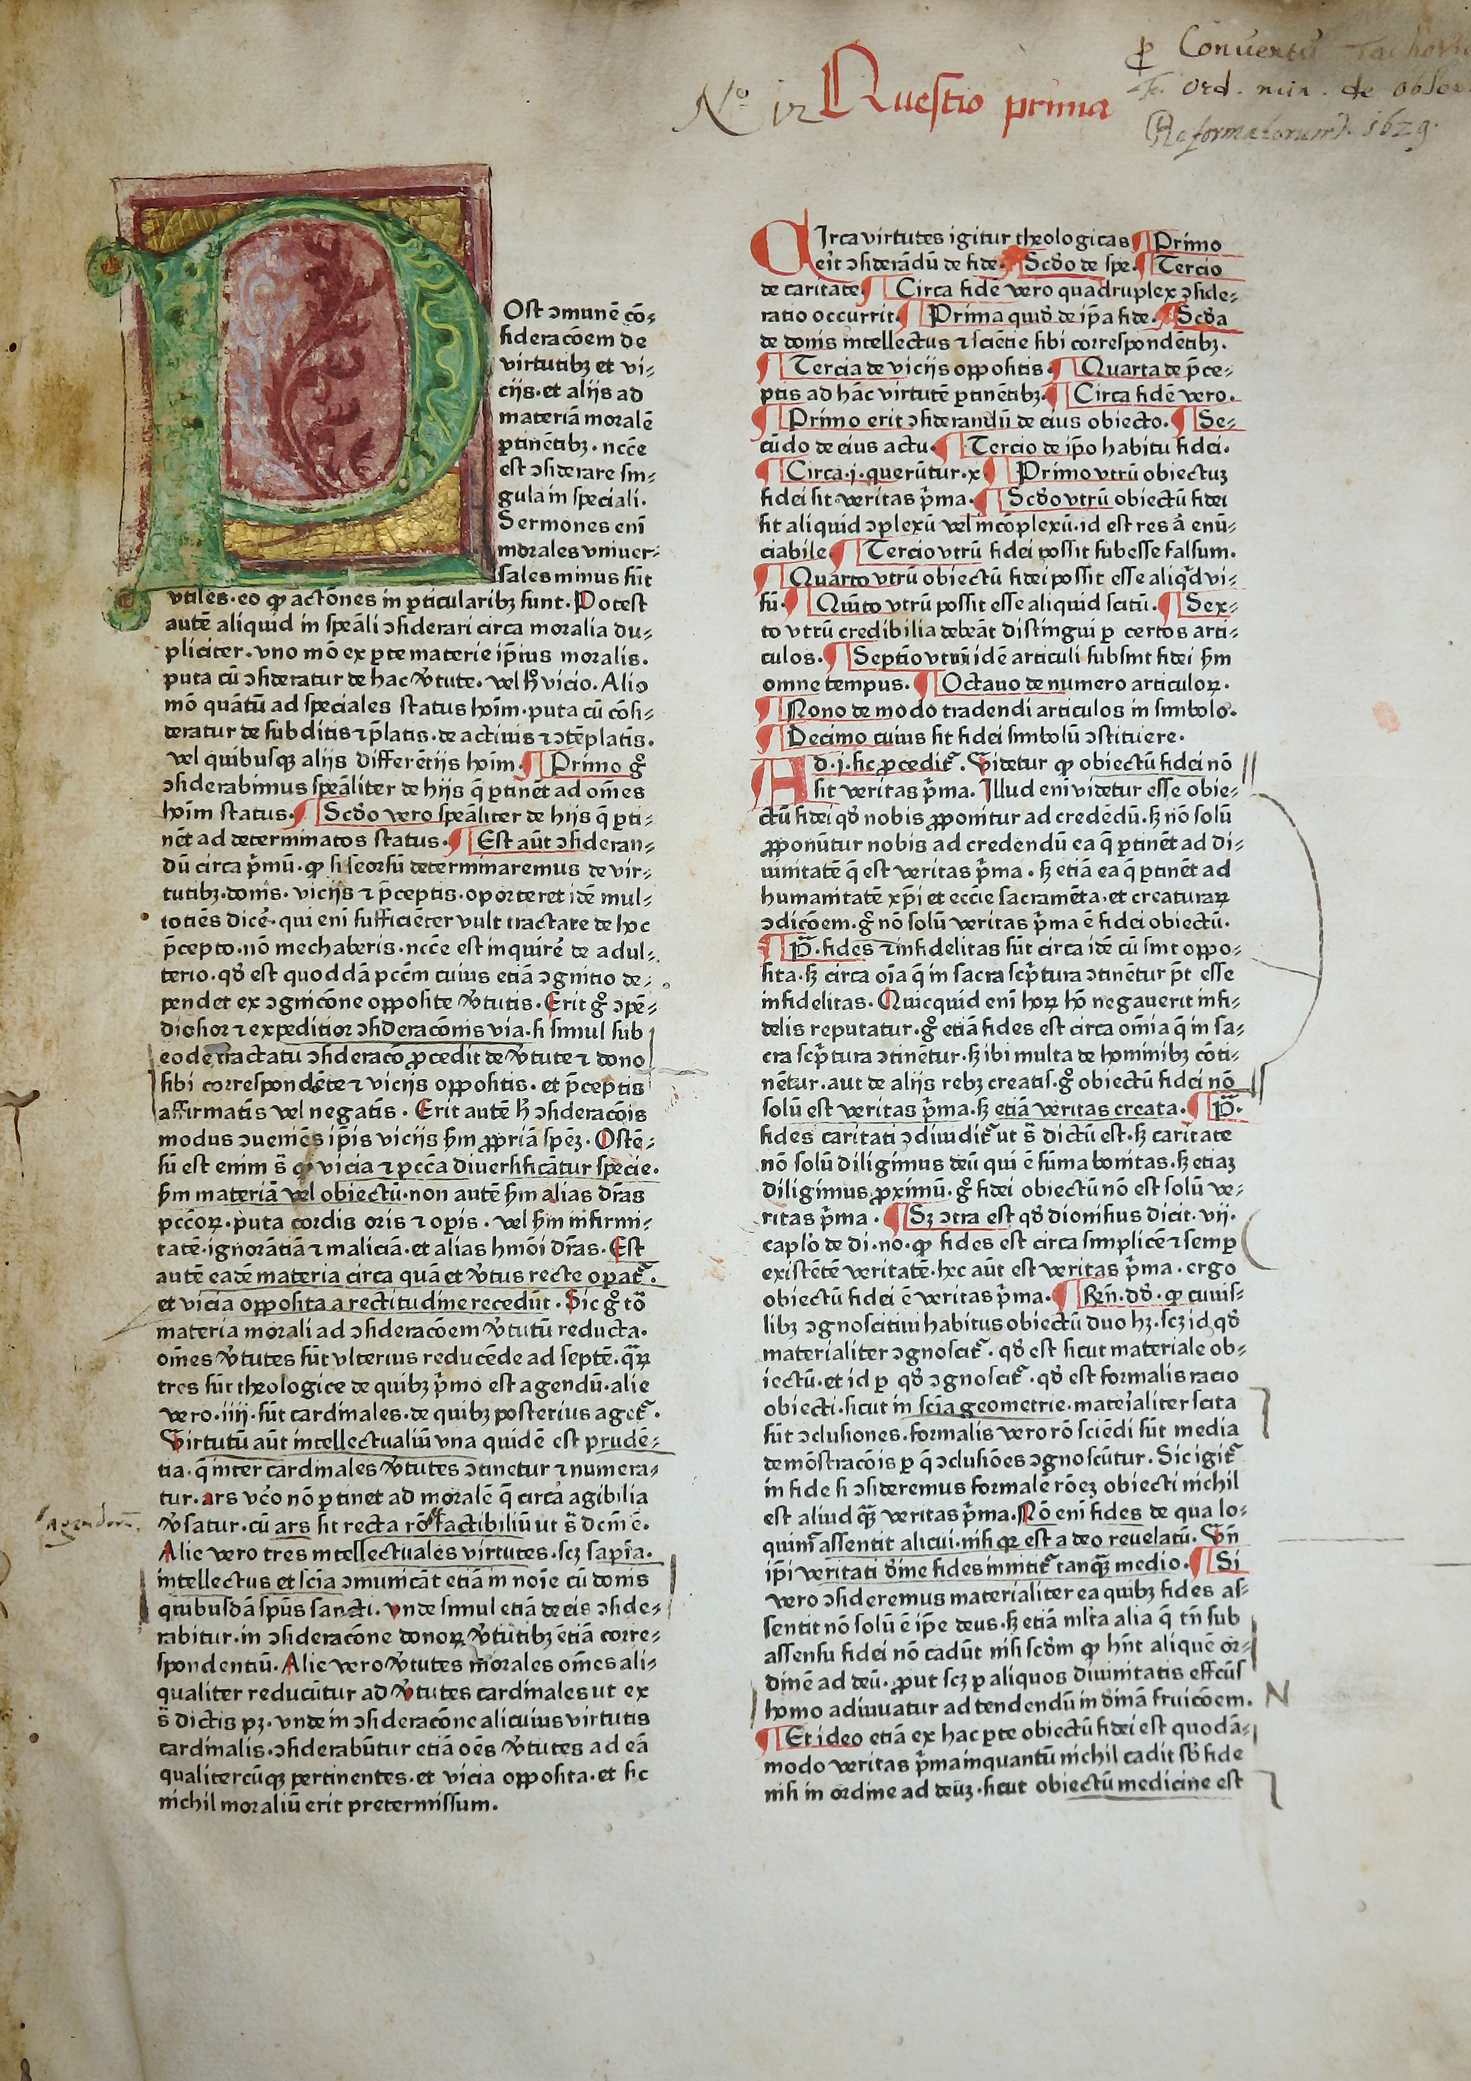 Nº 12 Questio prima
ꝑ Conventu Tachovi
Ord. min. de obser
Reformatorum. 1629.
Post ɔmunē cō⸗
sideracōem de
virtutibꝫ et vi⸗
cijs·et alijs ad
materiā moralē
ꝑtinētibꝫ·nccē
est ɔsiderare sin⸗
gula in speciali.
Sermones enī
morales vniuer⸗
sales minus sūt
vtiles·eo ꝙ actōnes in ꝑticularibꝫ sunt. Potest
autē aliquid in speāli ɔsiderari circa moralia du⸗
pliciter·vno mō ex ꝑte materie ip̄ius moralis.
puta cū ɔsideratur de hac v̾tute·vel h̾ vicio. Alio
mō quātū ad speciales status hoīm·puta cū cōsi⸗
deratur de subditis ⁊ p̄latis·de actiuis ⁊ ɔtēplatīs.
vel quibusqꝫ alijs differētijs hoīm.¶ Primo gͦ
ɔsiderabimus speāliter de hijs q̄ ꝑtinēt ad om̄es
hoīm status.¶ Scd̾o vero speāliter de hijs q̄ ꝑti⸗
nēt ad determinatos status.¶ Est aūt ɔsideran⸗
dū circa p̄mū·ꝙ si seorsū determinaremus de vir⸗
tutibꝫ·donis·vicijs ⁊ p̄ceptis·oporteret idē mul⸗
totiēs dicē·qui enī sufficiēter vult tractare de hoc
p̄cepto·nō mechaberis·nccē est inquirē de adul⸗
terio·qd̾ est quoddā pccm̄ cuius etiā ɔgnitio de⸗
pendet ex ɔgnicōne opposite v̾tutis·Erit gͦ ɔpē⸗
diosior ⁊ expeditior ɔsideracōnis via·si simul sub
eodē tractatu ɔsideracō ꝓcedit de v̾tute ⁊ dono
sibi correspondēte ⁊ vicijs oppositis·et p̄ceptis
affirmatīs vel negatīs·Erit autē h̾ ɔsideracōis
modus ɔueniēs ip̄is vicijs sm̄ ꝓpriā spēꝫ·Ostē⸗
sū est enim s̄ ꝙ vicia ⁊ pccā diuersificātur specie.
sm̄ materiā vel obiectū·non autē sm̄ alias dr̄as
pccōꝝ·puta cordis oris ⁊ opis·vel sm̄ infirmi⸗
tatē·ignorātiā ⁊ maliciā·et alias hmōi dr̄as·Est
autē eadē materia circa quā et v̾tus recte oꝑat᷑.
et vicia opposita a rectitudine recedūt·Sic gͦ tō
materia morali ad ɔsideracōem v̾tutū reducta.
om̄es v̾tutes sūt vlterius reducēde ad septē·q̄ꝝ
tres sūt theologice de quibꝫ p̄mo est agendū·alie
vero·iiij·sūt cardinales·de quibꝫ posterius aget᷑.
Virtutū aūt intellectualiū vna quidē est prudē⸗
tia·q̄ inter cardinales v̾tutes ɔtinetur ⁊ numera⸗
tur·ars v̾o nō ꝑtinet ad moralē q̄ circa agibilia
v̾satur·cū ars sit recta rō factibiliū ut s̄ dcm̄ ē.
Alie vero tres intellectuales virtutes·scꝫ sapīa.
intellectus et scīa ɔmunicāt etiā in noīe cū donis
quibusdā spūs sancti·vnde simul etiā de eis ɔside⸗
rabitur·in ɔsideracōne donoꝝ v̾tutibꝫ etiā corre⸗
spondentiū·Alie vero v̾tutes morales om̄es ali⸗
qualiter reducūtur ad v̾tutes cardinales ut ex
s̄ dictis pꝫ·vnde in ɔsideracōne alicuius virtutis
cardinalis·ɔsiderabūtur etiā oēs v̾tutes ad eā
qualitercūqꝫ pertinentes·et vicia opposita·et sic
nichil moraliū erit pretermissum.
Circa virtutes igitur theologicas ¶ Primo
erit ɔsiderādū de fide.¶ Scd̾o de spe.¶ Tercio
de caritate ¶ Circa fidē vero quadruplex ɔside⸗
ratio occurrit.¶ Prima quid̾ de ip̄a fide.¶ Scd̾a
de donis intellectus ⁊ sciētie sibi correspondētibꝫ.
¶ Tercia de vicijs oppositis.¶ Quarta de p̄ce⸗
ptis ad hāc virtutē ꝑtinētibꝫ.¶ Circa fidē vero.
¶ Primo erit ɔsiderandū de eius obiecto.¶ Se⸗
cūdo de eius actu.¶ Tercio de ip̄o habitu fidei.
¶ Circa·j·querūtur·x ¶ Primo vtrū obiectuꝫ
fidei sit veritas p̄ma.¶ Scd̾o vtrū obiectū fidei
sit aliquid ɔplexū vel incōplexū·id est res āt enū⸗
ciabile ¶ Tercio vtrū fidei possit subesse falsum.
¶ Quarto vtrū obiectū fidei possit esse aliqd̾ vi⸗
sū.¶ Quīto vtrū possit esse aliquid scitū.¶ Sex⸗
to vtrū credibilia debeāt distingui ꝑ certos arti⸗
culos.¶ Septīo vtrū idē articuli subsint fidei sm̄
omne tempus.¶ Octauo de numero articuloꝝ.
¶ Nono de modo tradendi articulos in simbolo.
¶ Decimo cuius sit fidei simbolū ɔstituere.
Ad·j·sic ꝓcedit᷑. Videtur ꝙ obiectū fidei nō
sit veritas p̄ma. Illud enī videtur esse obie⸗
ctū fidei qd̾ nobis ꝓponitur ad credēdū·sꝫ nō solū
ꝓponūtur nobis ad credendū ea q̄ ꝑtinēt ad di⸗
uinitatē q̄ est veritas p̄ma·sꝫ etiā ea q̄ ꝑtinēt ad
humanitatē xp̄i et eccīe sacramēta·et creaturaꝝ
ɔdicōem·gͦ nō solū veritas p̄ma ē fidei obiectū.
¶ P̄·fides ⁊ infidelitas sūt circa idē cū sint oppo⸗
sita·sꝫ circa oīa q̄ in sacra scp̄tura ɔtinētur p̄t esse
infidelitas·Quicquid enī hoꝝ hō negauerit infi⸗
delis reputatur·gͦ etiā fides est circa om̄ia q̄ in sa⸗
cra scp̄tura ɔtinētur·sꝫ ibi multa de hominibꝫ cōti⸗
nētur·aut de alijs rebꝫ creatis·gͦ obiectū fidei nō
solū est veritas p̄ma·sꝫ etiā veritas creata.¶ P̄·
fides caritati ɔdiuidit᷑ ut s̄ dictū est·sꝫ caritate
nō solū diligimus deū qui ē sūma bonitas·sꝫ etiaꝫ
diligimus ꝓximū·gͦ fidei obiectū nō est solū ve⸗
ritas p̄ma.¶ Sꝫ ɔtra est qd̾ dionisius dicit·vij.
caplo̾ de di·no·ꝙ fides est circa simplicē ⁊ semꝑ
existētē veritatē·hec aūt est veritas p̄ma·ergo
obiectū fidei ē veritas p̄ma.¶ Rn̄·dd̾·ꝙ cuius⸗
libꝫ ɔgnoscitiui habitus obiectū duo hꝫ·scꝫ id qd̾
materialiter ɔgnoscit᷑·qd̾ est sicut materiale ob⸗
iectū·et id ꝑ qd̾ ɔgnoscit᷑·qd̾ est formalis racio
obiecti·sicut in scīa geometrie·mat̾ialiter scita
sūt ɔclusiones·formalis vero rō sciēdi sūt media
demōstracōis ꝑ q̄ ɔclusiōes ɔgnoscūtur·Sic igit᷑
in fide si ɔsideremus formalē rōeꝫ obiecti nichil
est aliud qꝫ̄ veritas p̄ma·Nō enī fides de qua lo⸗
quim᷑ assentit alicui·nisi qꝛ est a deo reuelatū·Vn̄
ip̄i veritati diīne fides innitit᷑ tanqꝫ̄ medio.¶ Si
vero ɔsideremus materialiter ea quibꝫ fides as⸗
sentit nō solū ē ip̄e deus·sꝫ etiā ml̄ta alia q̄ tn̄ sub
assensu fidei nō cadūt nisi scd̾m ꝙ hn̄t aliquē or⸗
dinē ad deū·ꝓut scꝫ ꝑ aliquos diuinitatis effcūs
homo adiuuatur ad tendendū in diīnā fruicōem.
¶ Et ideo etiā ex hac ꝑte obiectū fidei est quodā⸗
modo veritas p̄ma inquantū nichil cadit sb̾ fide
nisi in ordine ad deūꝫ·sicut obiectū medicine est
N